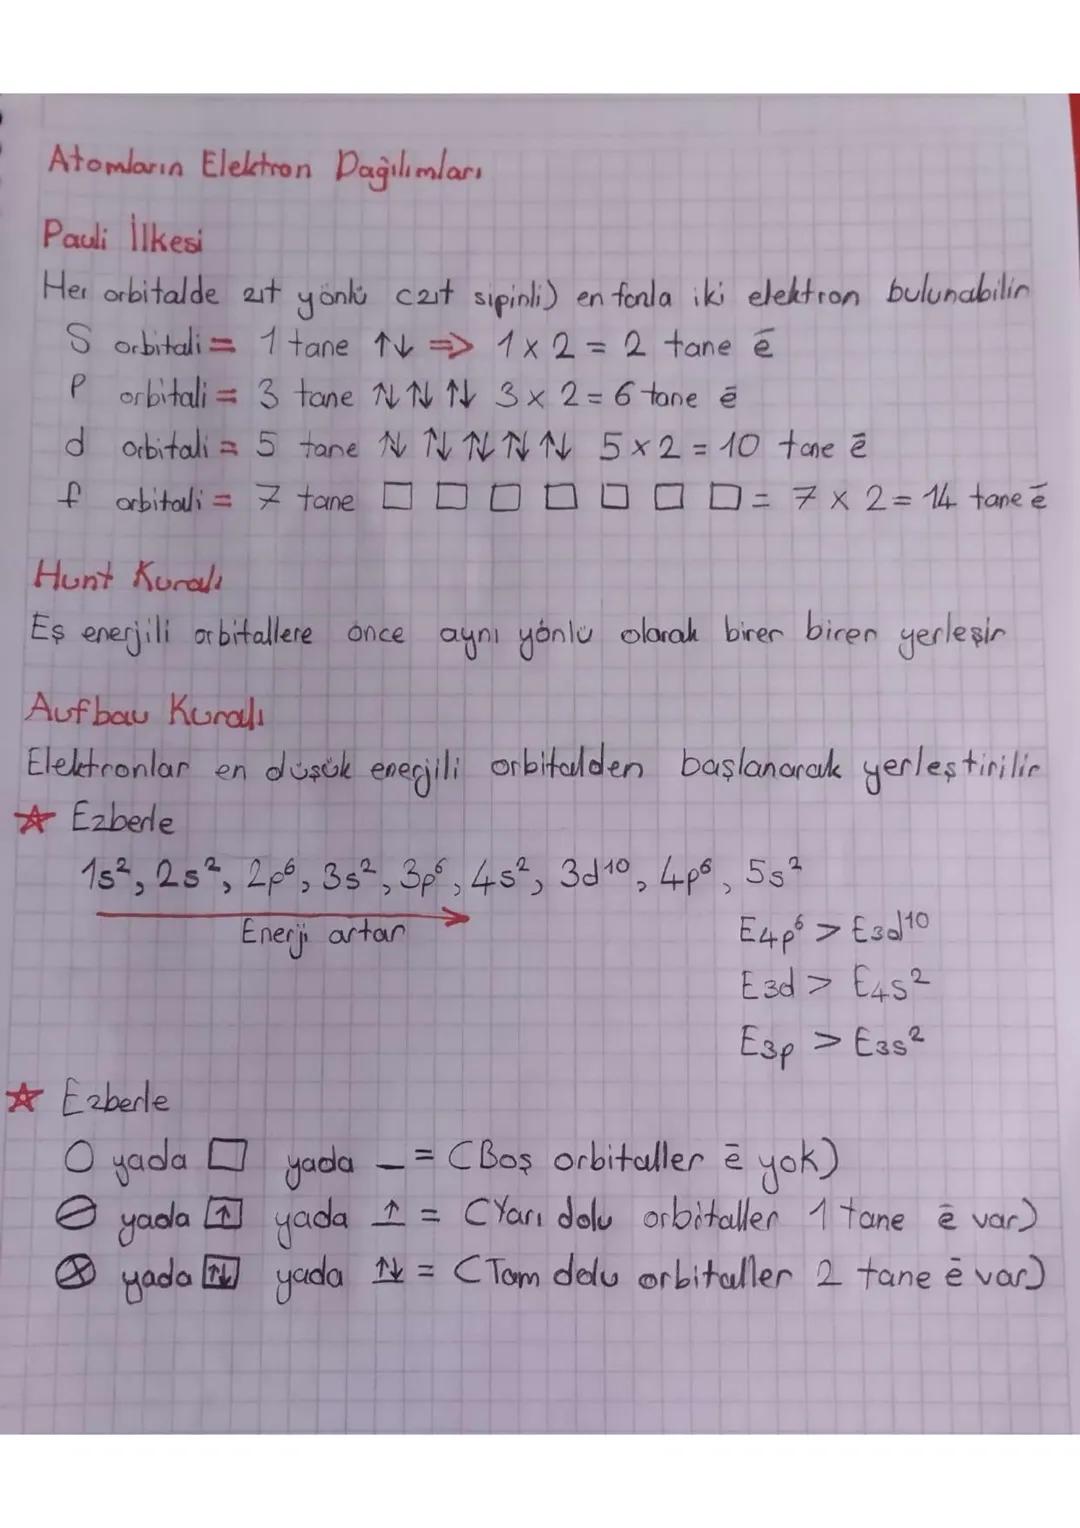 Atomların Elektron Dağılımları
Pauli İlkesi
Her orbitalde zıt yönlü (zıt sipinli) en fazla iki elektron bulunabilir
S orbitali = 1 tane ↑↓ => 1 x 2 = 2 tane ē
P orbitali = 3 tane ↑↓ ↑↓ ↑↓ 3 x 2 = 6 tane ē
d orbitali = 5 tane ↑↓ ↑↓ ↑↓ ↑↓ ↑↓ 5 x 2 = 10 tane ē
f orbitali = 7 tane □ □ □ □ □ □ □ = 7 x 2 = 14 tane ē
Hunt Kuralı
Eş enerjili orbitallere önce aynı yönlü olarak birer birer yerleşir
Aufbau Kuralı
Elektronlar en düşük enerjili orbitalden başlanarak yerleştirilir
☆ Ezberle
1s², 2s², 2p⁶, 3s², 3p⁶, 4s², 3d¹⁰, 4p⁶, 5s²
Enerji artar
E4p⁶ > E3d¹⁰
E3d > E4s²
E3p > E3s²
☆ Ezberle
○ yada □ yada _ = (Boş orbitaller ē yok)
⊘ yada ↑ yada ↑ = (Yarı dolu orbitaller 1 tane ē var)
⊗ yada ↑↓ yada ↑↓ = (Tam dolu orbitaller 2 tane ē var)